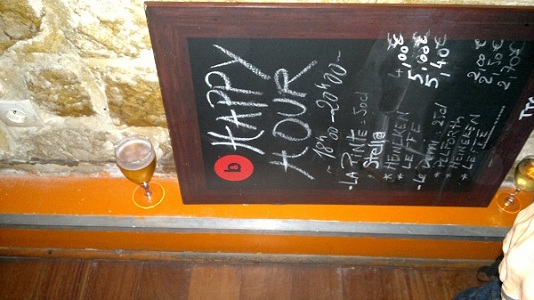 b HAPPY
HOUR
~ 18h00 - 20h00 ~
- LA PINTE 50cl
Stella 4,00€
* HEINEKEN 5,00€
* LEFFE 5,40€
- Le Demi 25cl
* HEINEKEN
* LEFFE 2,70€
TTC